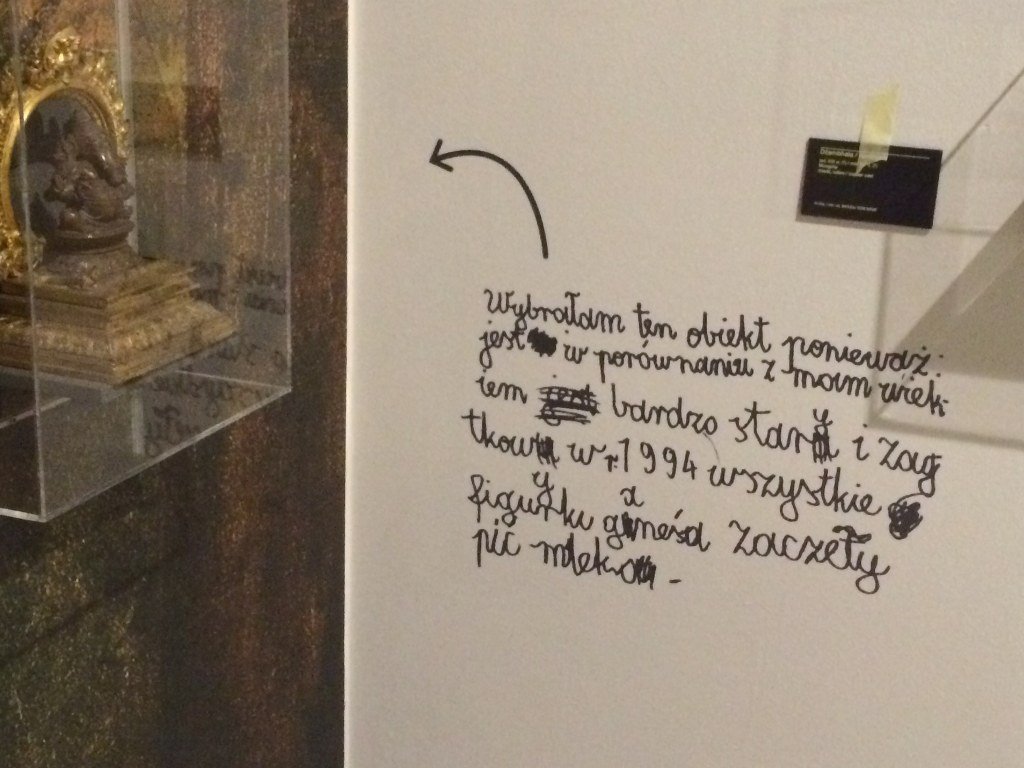 Wybrałam ten obiekt ponieważ:
jest w porównaniu z moim wiek-
iem bardzo stary i zag
tkowy w r.1994 wszystkie
figurku ganeśa zaczęły
pić mleko -